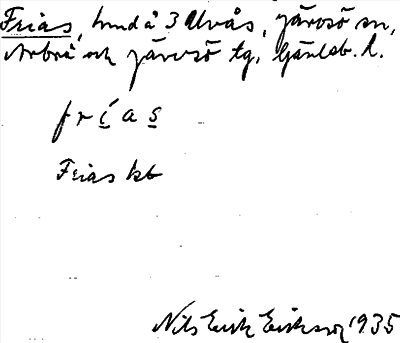 Frias, hmd å 3 Ulvås, Järvsö sn,
Arbrå och Järvsö tg, Gävleb. l.
f r í a s
Frias kb
Nils Erik Eriksson 1935